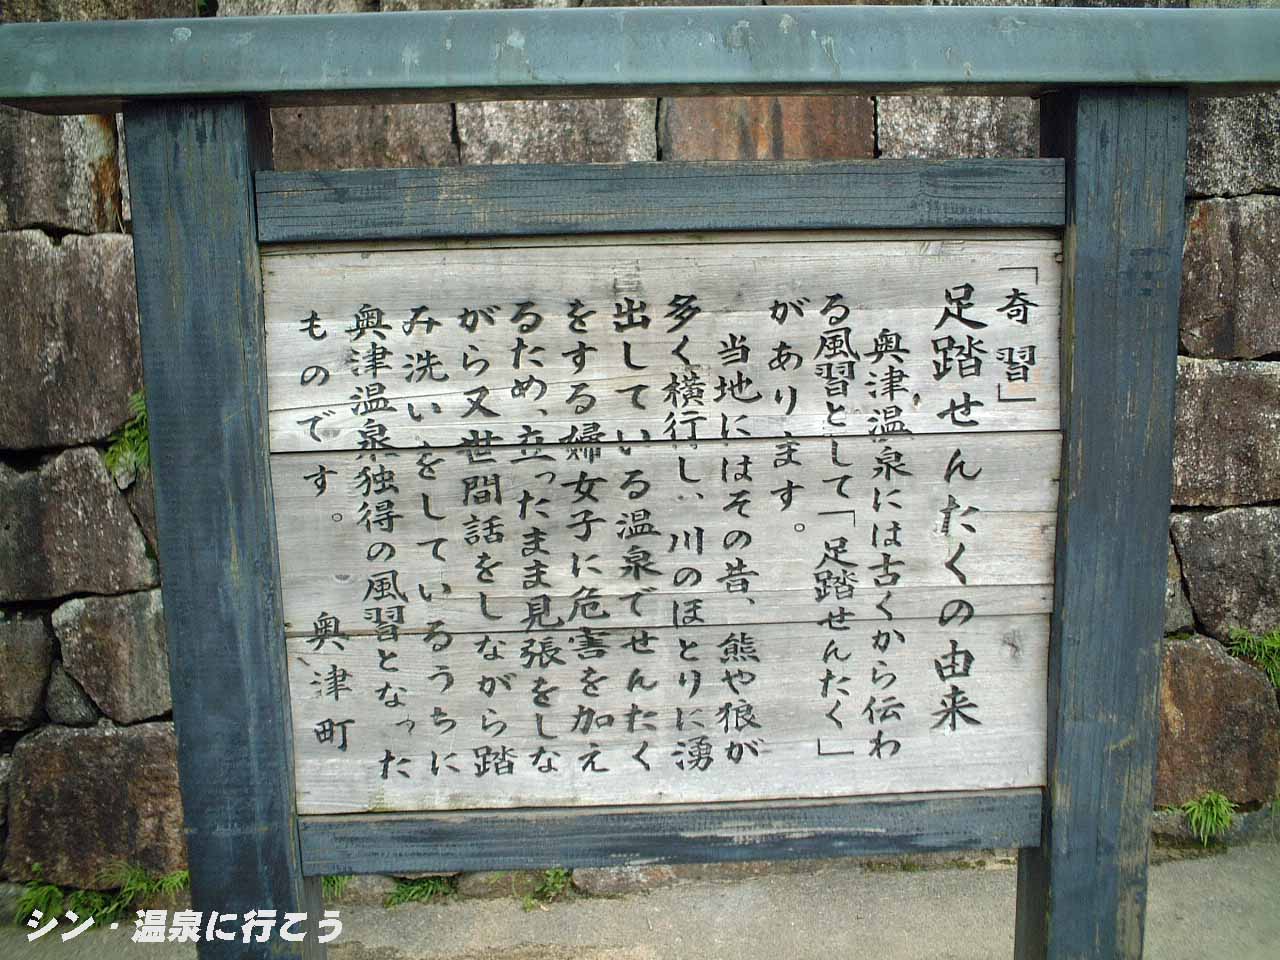 「奇習」
足踏せんたくの由来
奥津温泉には古くから伝わ
る風習として「足踏せんたく」
があります。
当地にはその昔、熊や狼が
多く横行し、川のほとりに湧
出している温泉でせんたく
をする婦女子に危害を加え
るため、立ったまま見張をしな
がら又世間話をしながら踏
み洗いをしているうちに
奥津温泉独得の風習となった
ものです。 奥津町
シン・温泉に行こう